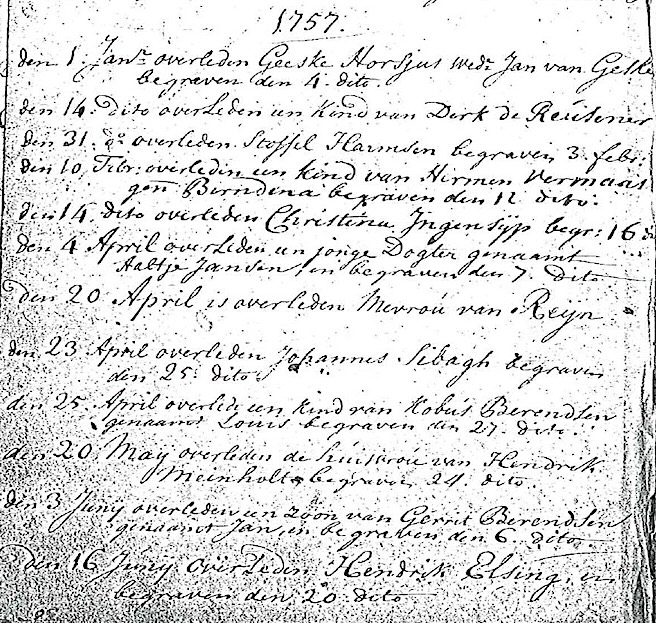 1757.
den 1. Jan.r overleden Geeske Horsjus wed.e Jan van Gelke
begraven den 4. dito.
den 14. dito overleden een kind van Derk de Reusener
den 31. do overleden Stoffel Harmsen begraven 3. febr:
den 10. Febr: overleden een kind van Hermen Vermaas
gen. Berndina begraven den 12 dito.
den 14. dito overleden Christina Ingensyp begr: 16
den 4 April overleden een jonge Dogter genaamt
Aaltje Jansen, en begraven den 7. dito
den 20 April is overleden Mevrou van Reijn
den 23 April overleden Johannes Sibagh begraven
den 25. dito.
den 25. April overlede een kind van Kobus Berendsen
genaamt Louis begraven den 27. dito.
den 20 May overleden de huisvrou van Hendrik
Meinholt begraven 24. dito.
den 3 Juny overleden een zoon van Gerrit Berendsen
genaamt Jan, en begraven den 6. dito.
den 16 Juny overleden Hendrik Elsing, en
begraven den 20. dito